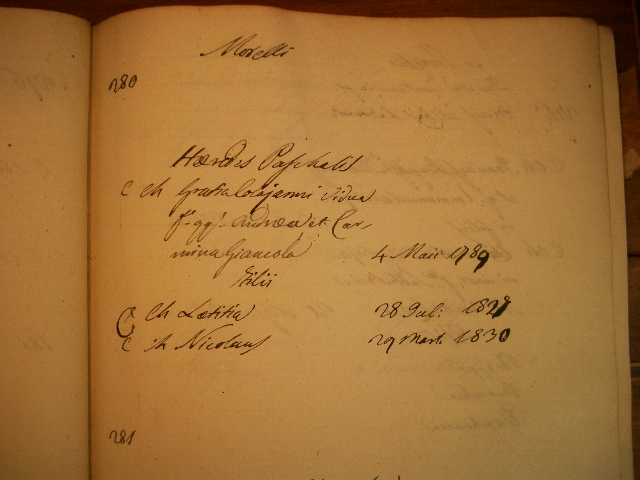 Morelli
280
Hæredes Paschalis
C Ch Gratia Colajanni Vidua
f. qq. Andreæ et Car
mina Giancola 4 Maii 1789
Filii
C Ch Lætitia 28 Jul: 1827
C Ch Nicolaus 29 Mart. 1830
281